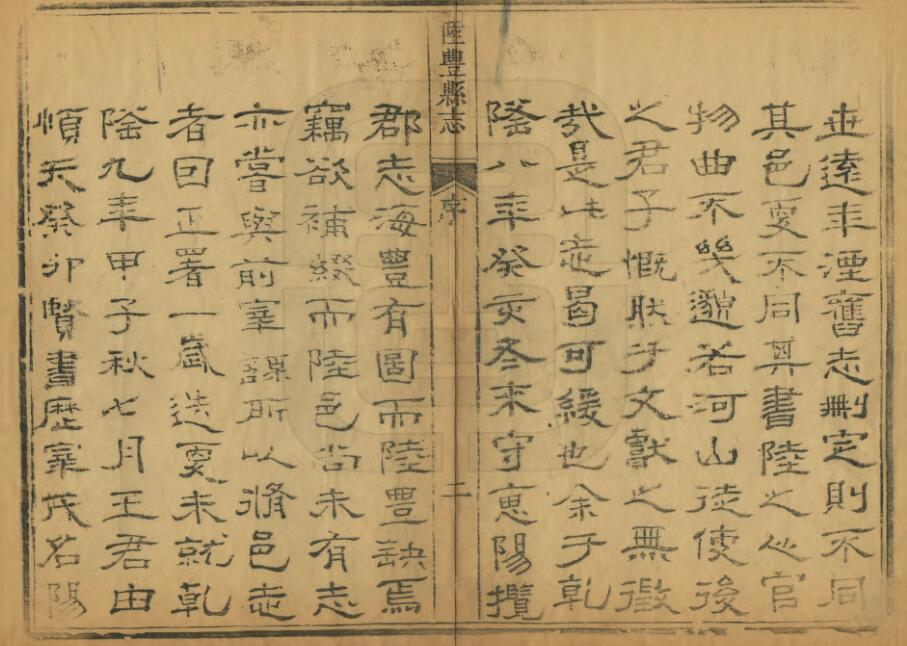 世遠年湮舊志刪定則不同
其邑更不同其書陸之人官
物曲不幾邈若河山徒使後
之君子慨然于文獻之無徵
哉是此志曷可緩也余于乹
隆八年癸亥冬来守恵陽攬
陸豐縣志
序
二
郡志海豐有圖而陸豐缺焉
竊欲補綴而陸邑尚未有志
亦嘗與前宰謀所以脩邑志
者囙正署一歲迭更未就乹
隆九年甲子秋七月王君由
順天癸卯賢書歷宰茂名陽